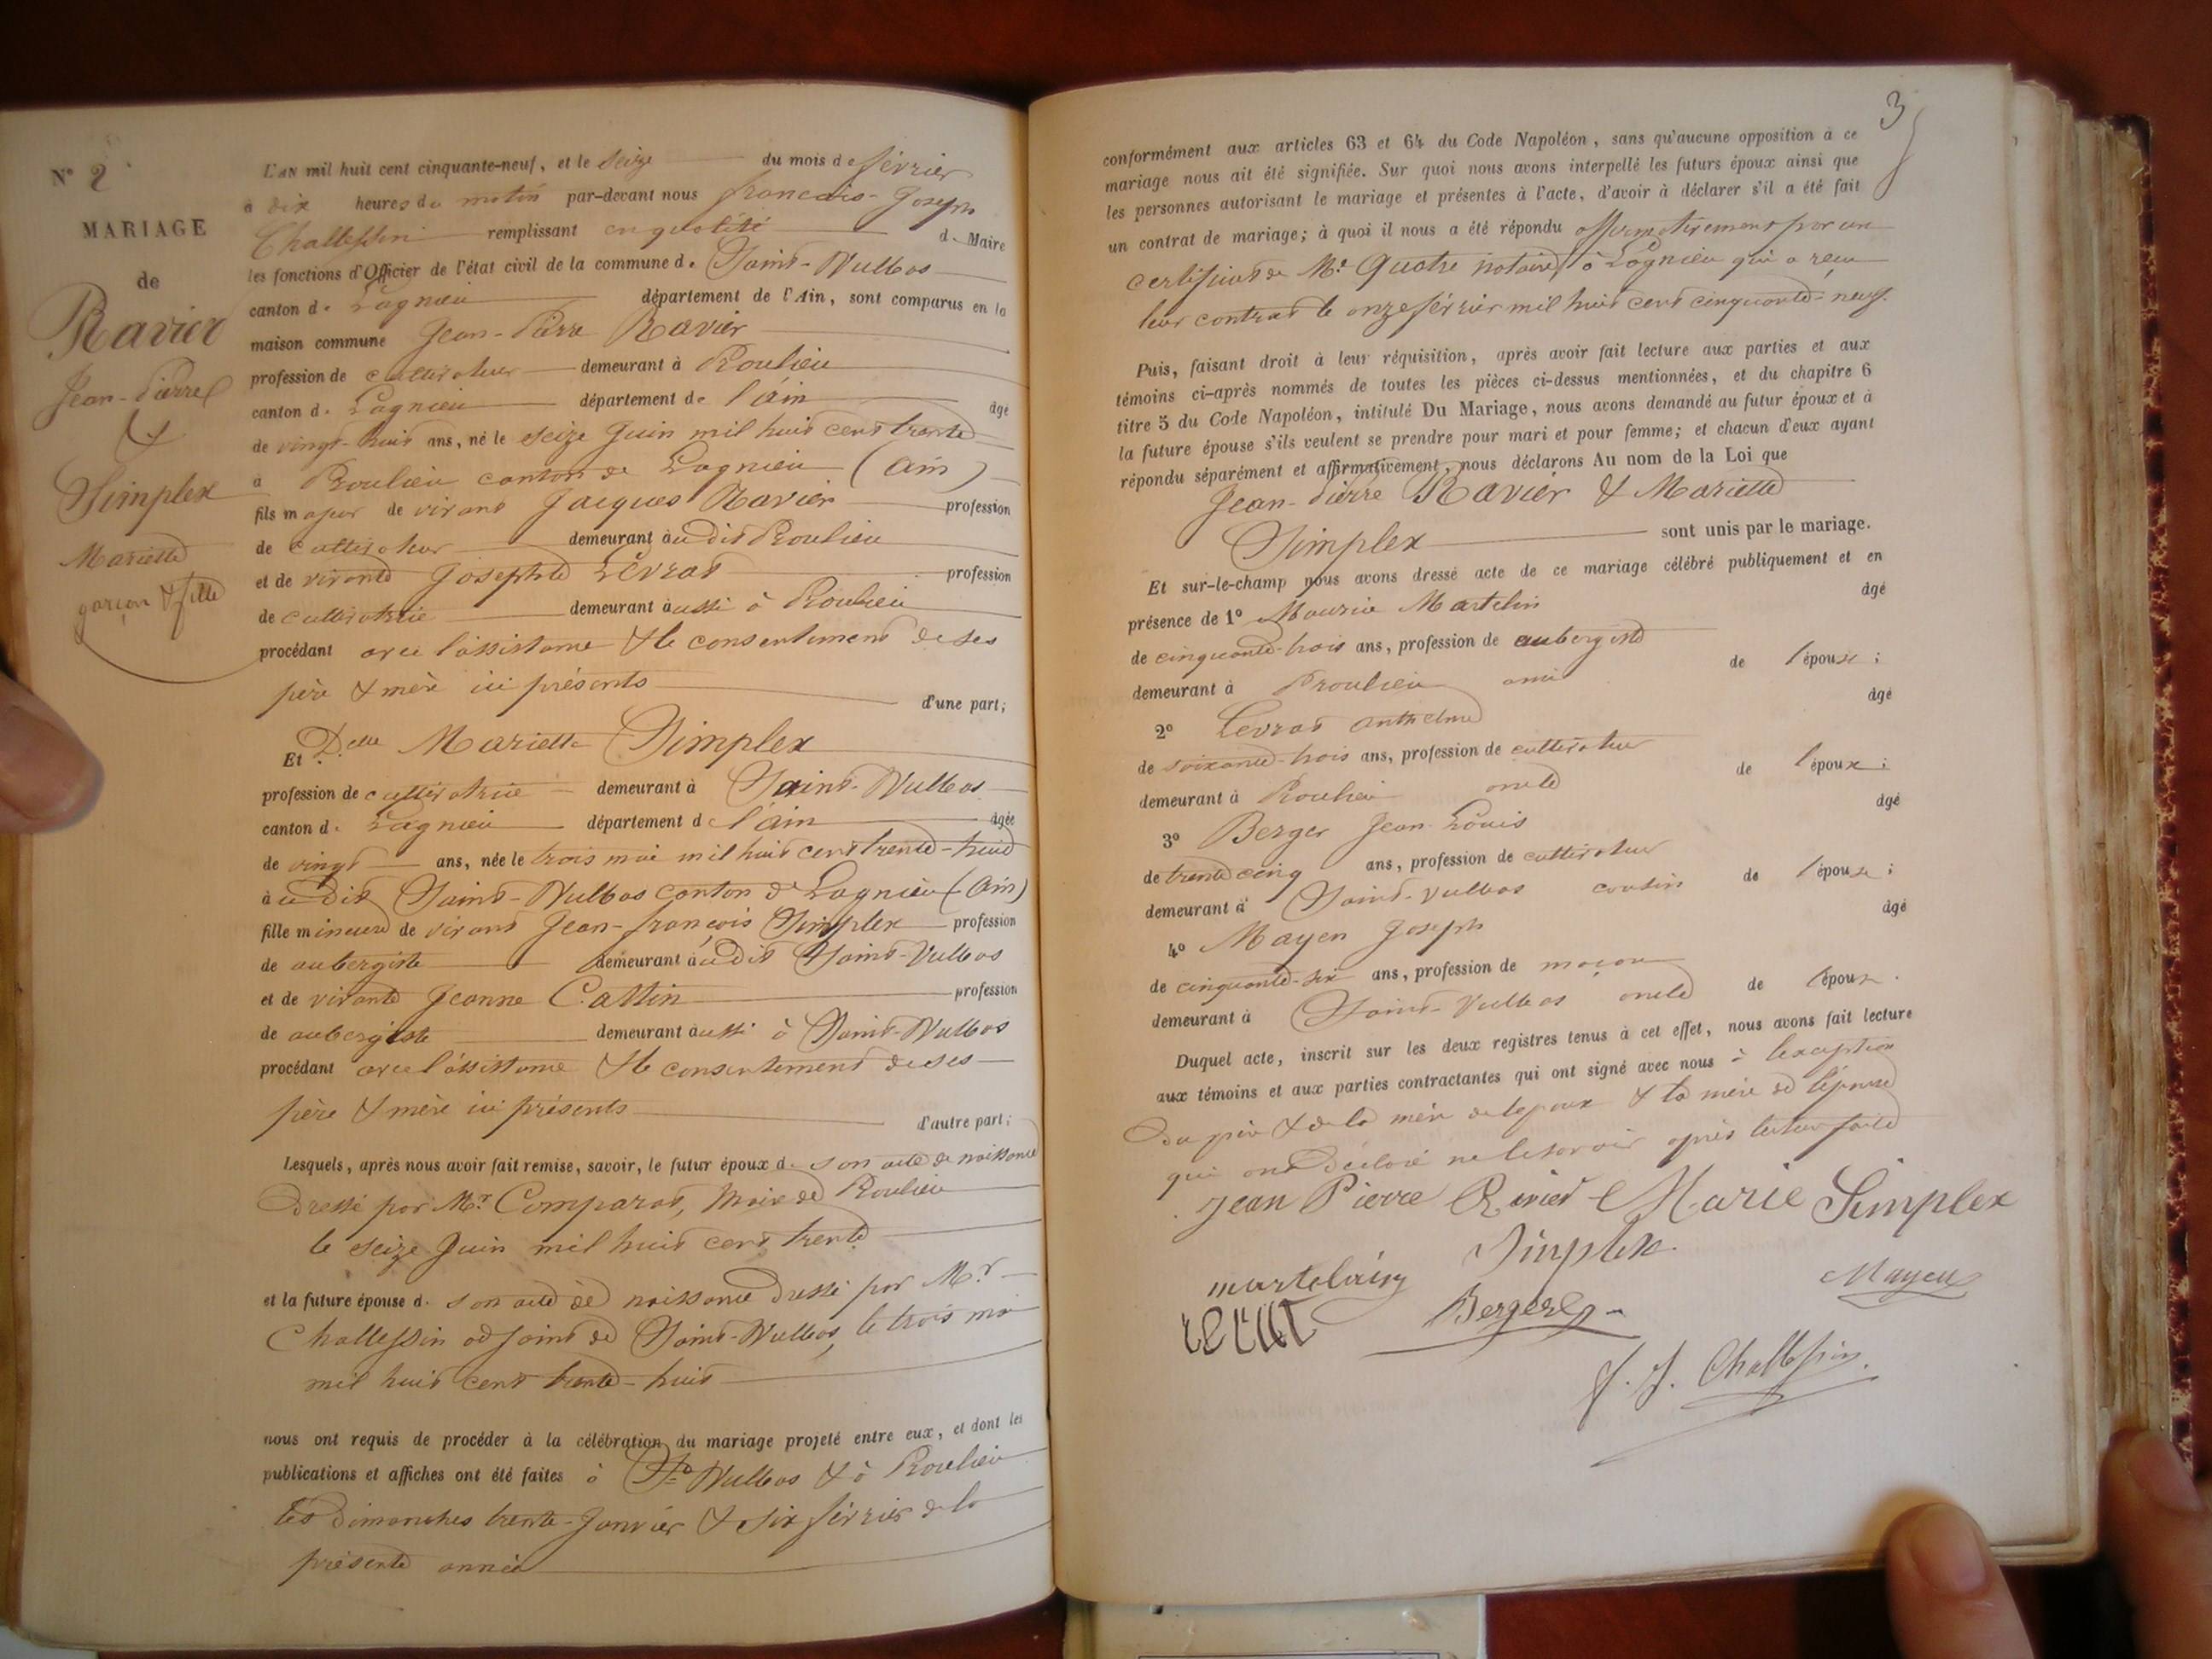 N° 2
MARIAGE
de
Ravier
Jean-Pierre
&
Simplex
Mariette
garçon & fille
L'AN mil huit cent cinquante-neuf, et le seize du mois de février
à dix heures du matin par-devant nous françois-Joseph
Challessin remplissant en qualité de Maire
les fonctions d'Officier de l'état civil de la commune d. Saint-Vulbas
canton d. Lagnieu département de l'Ain, sont comparus en la
maison commune Jean-Pierre Ravier
profession de cultivateur demeurant à Proulieu
canton d. Lagnieu département de l'ain âgé
de vingt-huit ans, né le seize Juin mil huit cent trente
à Proulieu canton de Lagnieu (Ain)
fils majeur de vivant Jacques Ravier profession
de cultivateur demeurant audit Proulieu
et de vivante Josephte Levrat profession
de cultivatrice demeurant aussi à Proulieu
procédant avec l'assistance & le consentement de ses
père & mère ici présents d'une part;
Et Delle Mariette Simplex
profession de cultivatrice demeurant à Saint-Vulbas
canton d. Lagnieu département d l'ain âgée
de vingt ans, née le trois mai mil huit cent trente-huit
à udit Saint-Vulbas canton de Lagnieu (Ain)
fille mineure de vivant Jean-françois Simplex profession
de aubergiste demeurant audit Saint-Vulbas
et de vivante Jeanne Cattin profession
de aubergiste demeurant aussi à Saint-Vulbas
procédant avec l'assistance & le consentement de ses
père & mère ici présents d'autre part;
Lesquels, après nous avoir fait remise, savoir, le futur époux d. son acte de naissance
dressé par Mr Comparat, Maire de Proulieu
le seize Juin mil huit cent trente
et la future épouse d. son acte de naissance dressé par Mr
Challessin adjoint de Saint-Vulbas, le trois mai
mil huit cent trente-huit
nous ont requis de procéder à la célébration du mariage projeté entre eux, et dont les
publications et affiches ont été faites à St Vulbas & à Proulieu
les dimanches trente-Janvier & six février de la
présente année
3
conformément aux articles 63 et 64 du Code Napoléon, sans qu'aucune opposition à ce
mariage nous ait été signifiée. Sur quoi nous avons interpellé les futurs époux ainsi que
les personnes autorisant le mariage et présentes à l'acte, d'avoir à déclarer s'il a été fait
un contrat de mariage; à quoi il nous a été répondu affirmativement par un
certificat de Me Quatre notaire à Lagnieu qui a reçu
leur contrat le onze février mil huit cent cinquante-neuf.
Puis, faisant droit à leur réquisition, après avoir fait lecture aux parties et aux
témoins ci-après nommés de toutes les pièces ci-dessus mentionnées, et du chapitre 6
titre 5 du Code Napoléon, intitulé Du Mariage, nous avons demandé au futur époux et à
la future épouse s'ils veulent se prendre pour mari et pour femme; et chacun d'eux ayant
répondu séparément et affirmativement, nous déclarons Au nom de la Loi que
Jean-Pierre Ravier & Mariette
Simplex sont unis par le mariage.
Et sur-le-champ nous avons dressé acte de ce mariage célébré publiquement et en
présence de 1° Maurice Martelin âgé
de cinquante-trois ans, profession de aubergiste
demeurant à Proulieu ami de l'épouse;
2° Levrat anthelme âgé
de soixante-trois ans, profession de cultivateur
demeurant à Proulieu oncle de l'époux;
3° Berger Jean Louis âgé
de trente cinq ans, profession de cultivateur
demeurant à Saint-Vulbas cousin de l'épouse;
4° Mayen Joseph âgé
de cinquante-six ans, profession de maçon
demeurant à Saint-Vulbas oncle de l'épouse.
Duquel acte, inscrit sur les deux registres tenus à cet effet, nous avons fait lecture
aux témoins et aux parties contractantes qui ont signé avec nous à l'exception
du père & de la mère de l'époux & la mère de l'épouse
qui ont déclaré ne le savoir après lecture faite
Jean Pierre Ravier Marie Simplex
Simplex
martelain Mayen
levrat Berger
f. J. Challessin